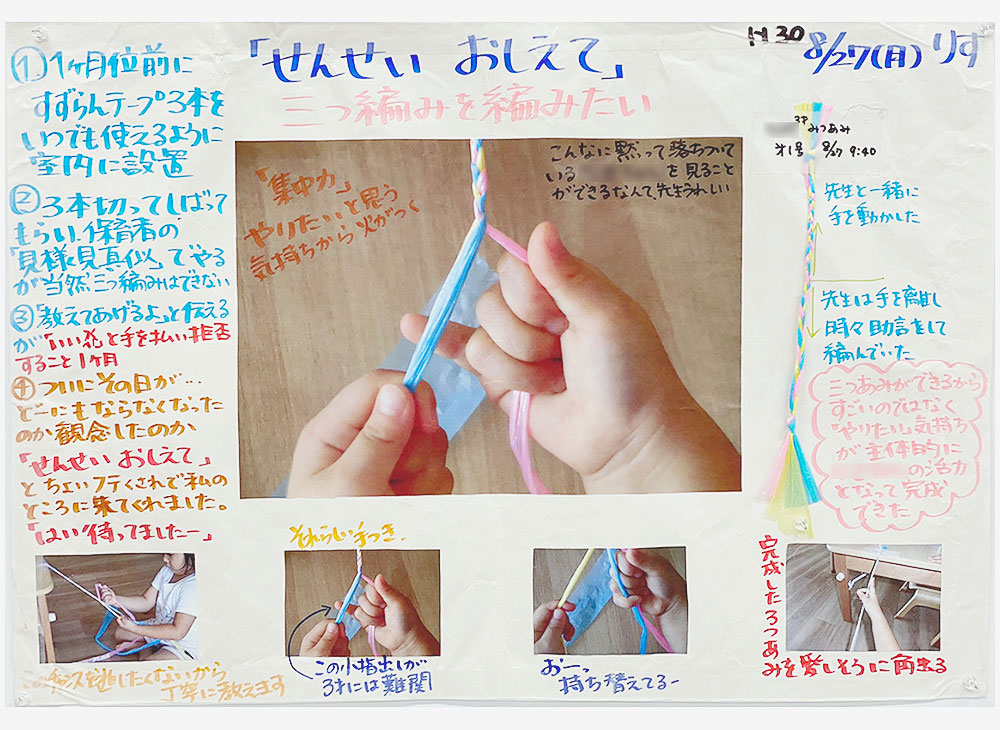 「せんせい おしえて」
三つ編みを編みたい
H30 8/27(月) りす
① 1ヶ月位前に
すずらんテープ3本を
いつでも使えるように
室内に設置
② 3本切ってしばって
もらい、保育者の
「見様見真似」でやる
が当然、三つ編みはできない
③「教えてあげるよ」と伝える
が「いい」と手を払い拒否
すること1ヶ月
④ ついにその日が…
どーにもならなくなった
のか観念したのか
「せんせい おしえて」
とちょいフテくされで私の
ところに来てくれました。
「はい待ってましたー」
「集中力」
やりたいと思う
気持ちから火がつく
こんなに黙って落ちついて
いる
を見ること
ができるなんて、先生うれしい
3才 みつあみ
オ1号 8/27 9:40
先生と一緒に
手を動かした
先生は手を離し
時々助言をして
編んでいた
三つあみができるから
すごいのではなく
"やりたい"気持ち
が主体的に
の活力
となって完成
できた
チャンスを逃したくないから
丁寧に教えます
それらしい手つき。
この小指出しが
3才には難関
おーっ
持ち替えてるー
完成した3つあ
みを愛しそうに